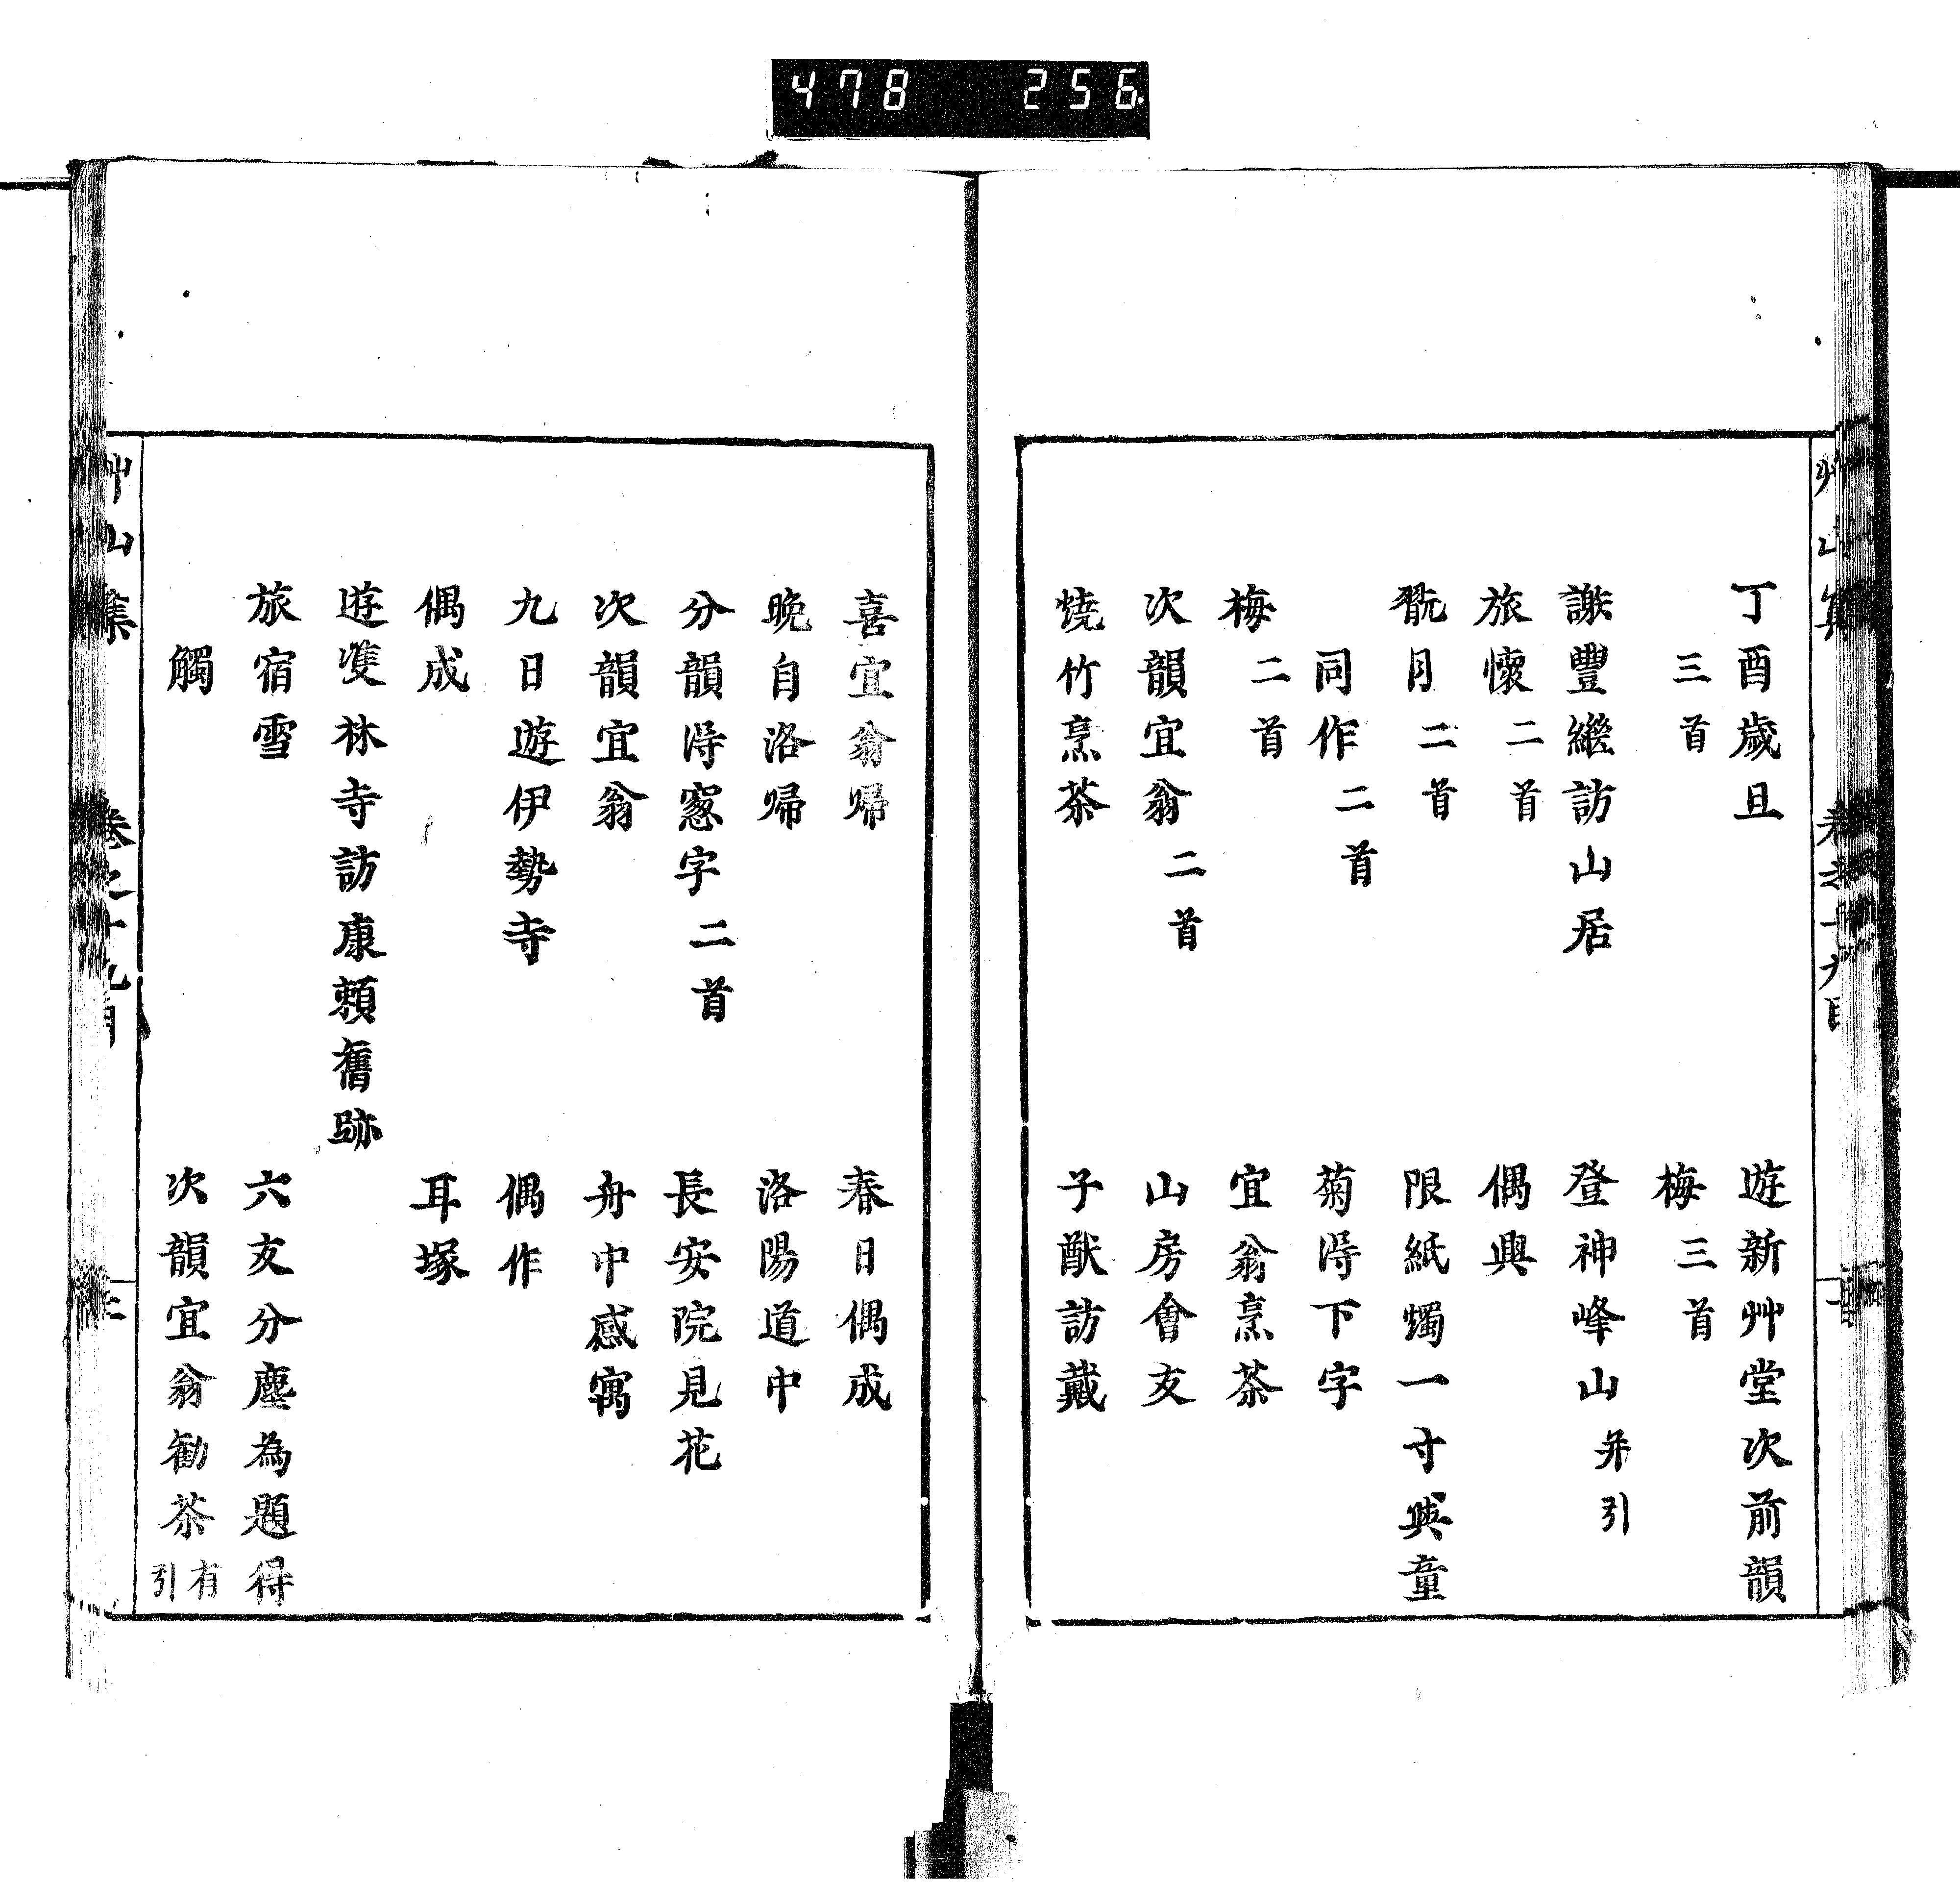 478 256
丁酉歲旦 遊新艸堂次前韻
三首 梅三首
謝豐繼訪山居 登神峰山并引
旅懷二首 偶興
翫月二首 限紙燭一寸與童
同作二首 菊得下字
梅二首 宜翁烹茶
次韻宜翁二首 山房會友
燒竹烹茶 子猷訪戴
喜宜翁歸 春日偶成
晚自洛歸 洛陽道中
分韻得窻字二首 長安院見花
次韻宜翁 舟中感寓
九日遊伊勢寺 偶作
偶成 耳塚
遊雙林寺訪康頼舊跡
旅宿雪 六友分塵為題得
觸 次韻宜翁勧茶有引
艸山集 卷之十九目